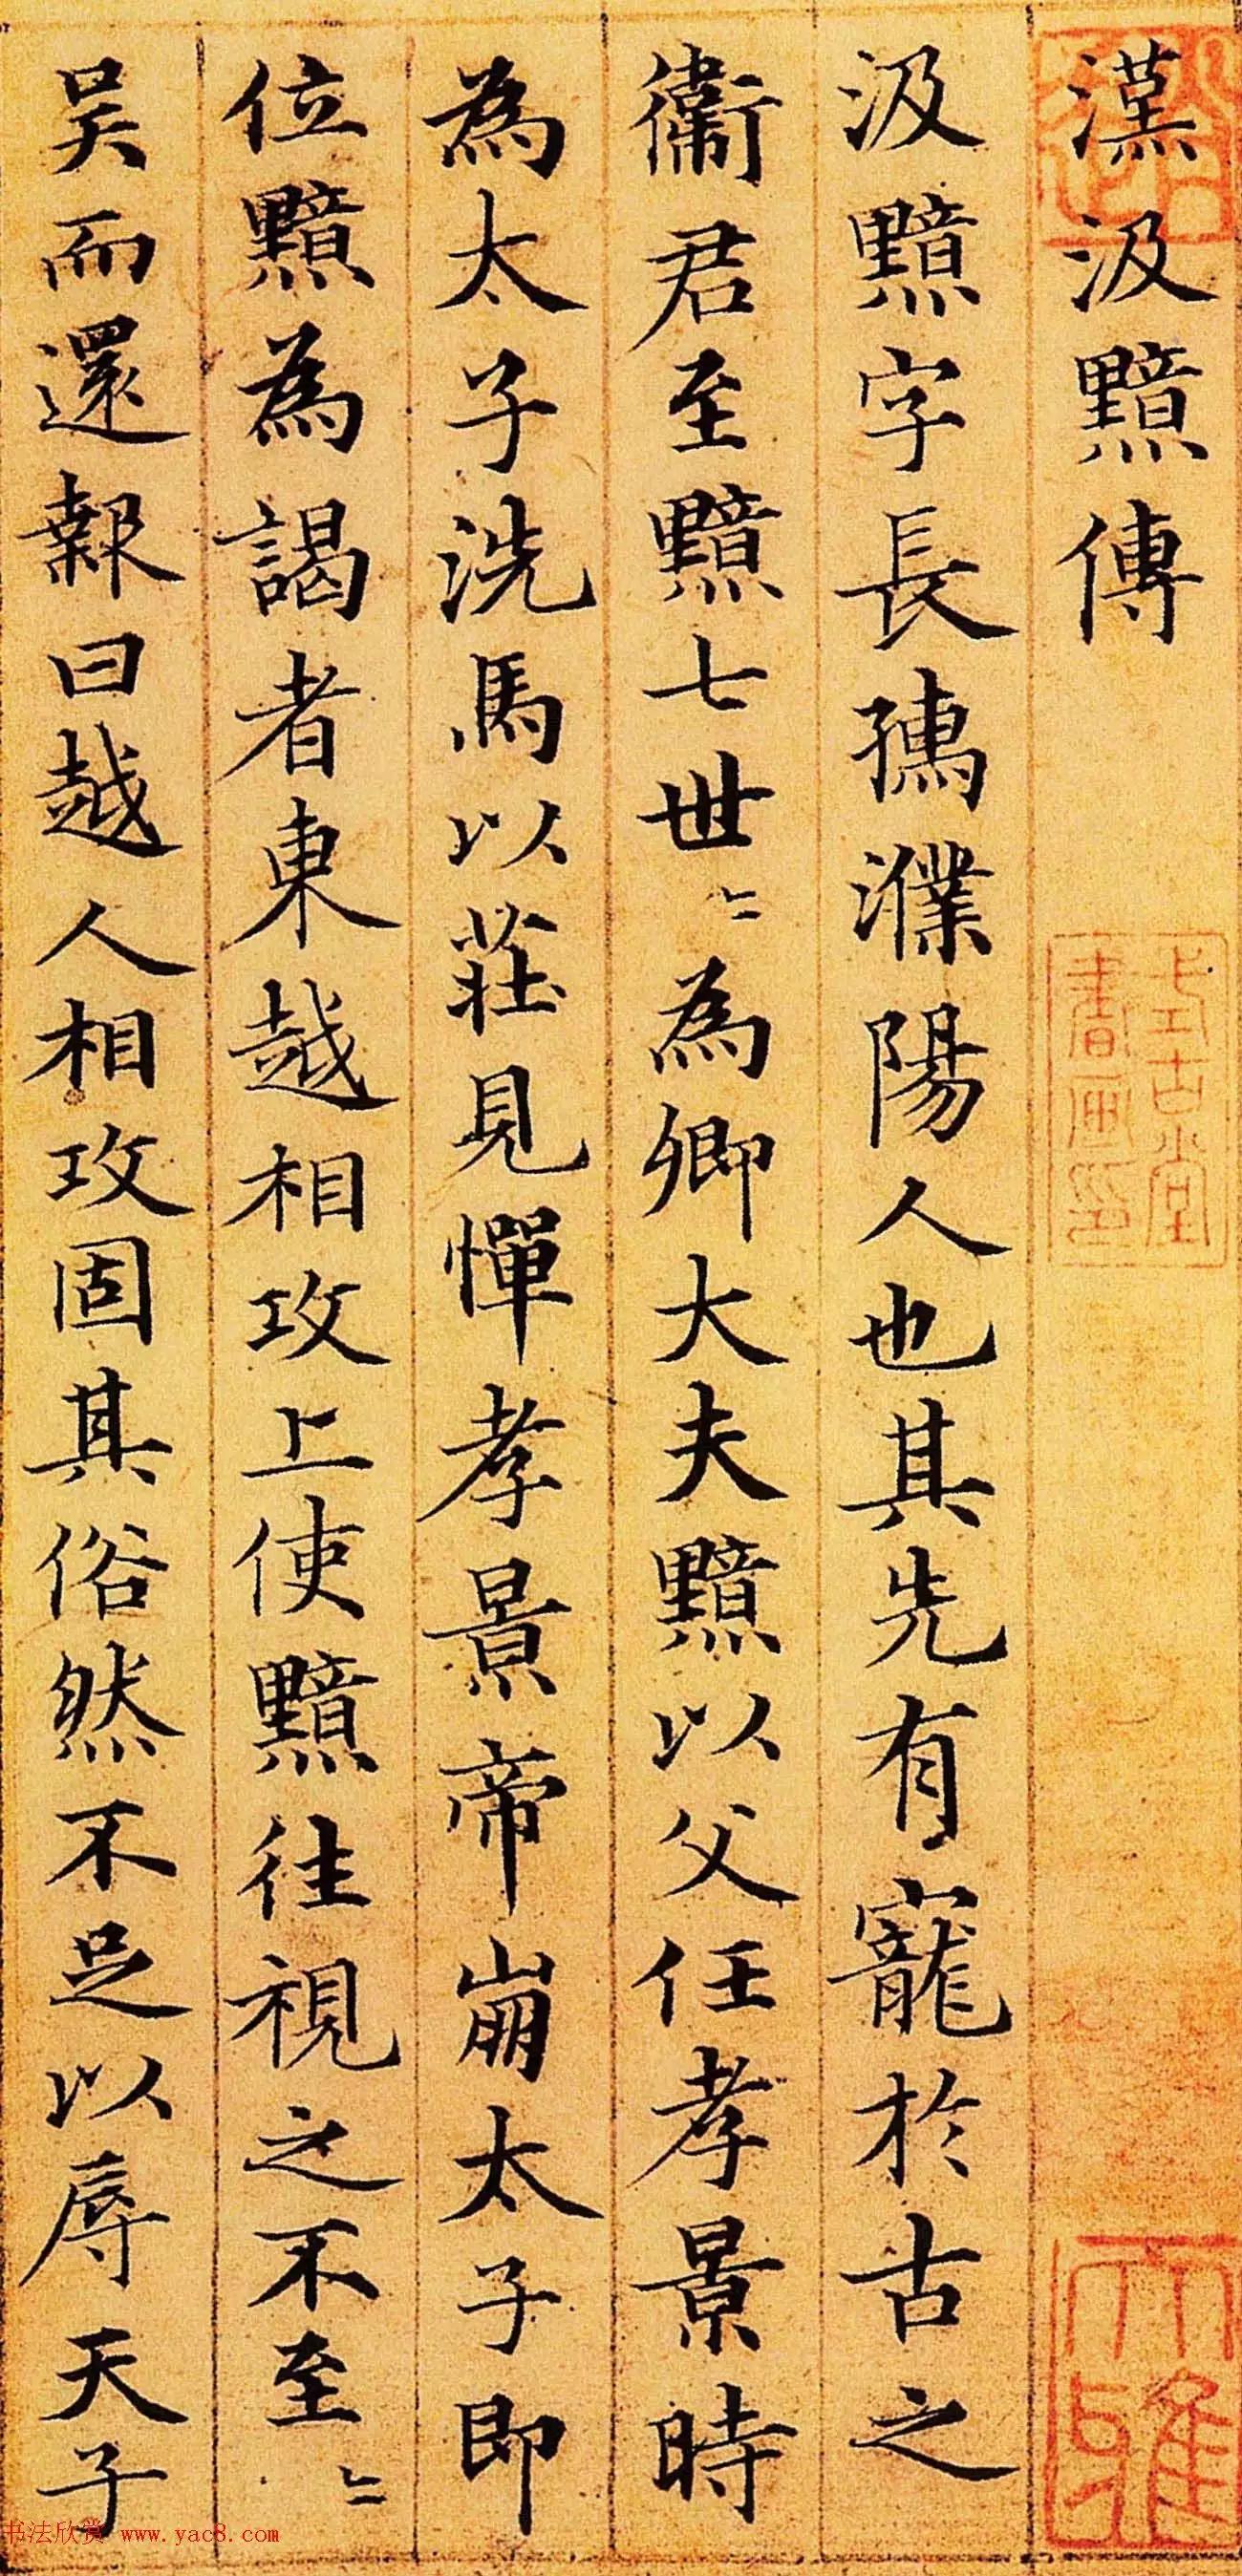 漢汲黯傳
汲黯字長孺濮陽人也其先有寵於古之
衞君至黯七世〻為卿大夫黯以父任孝景時
為太子洗馬以莊見憚孝景帝崩太子即
位黯為謁者東越相攻上使黯往視之不至〻
吳而還報曰越人相攻固其俗然不足以辱天子
式古堂書画印
大雅
书法欣赏 www.yac8.com